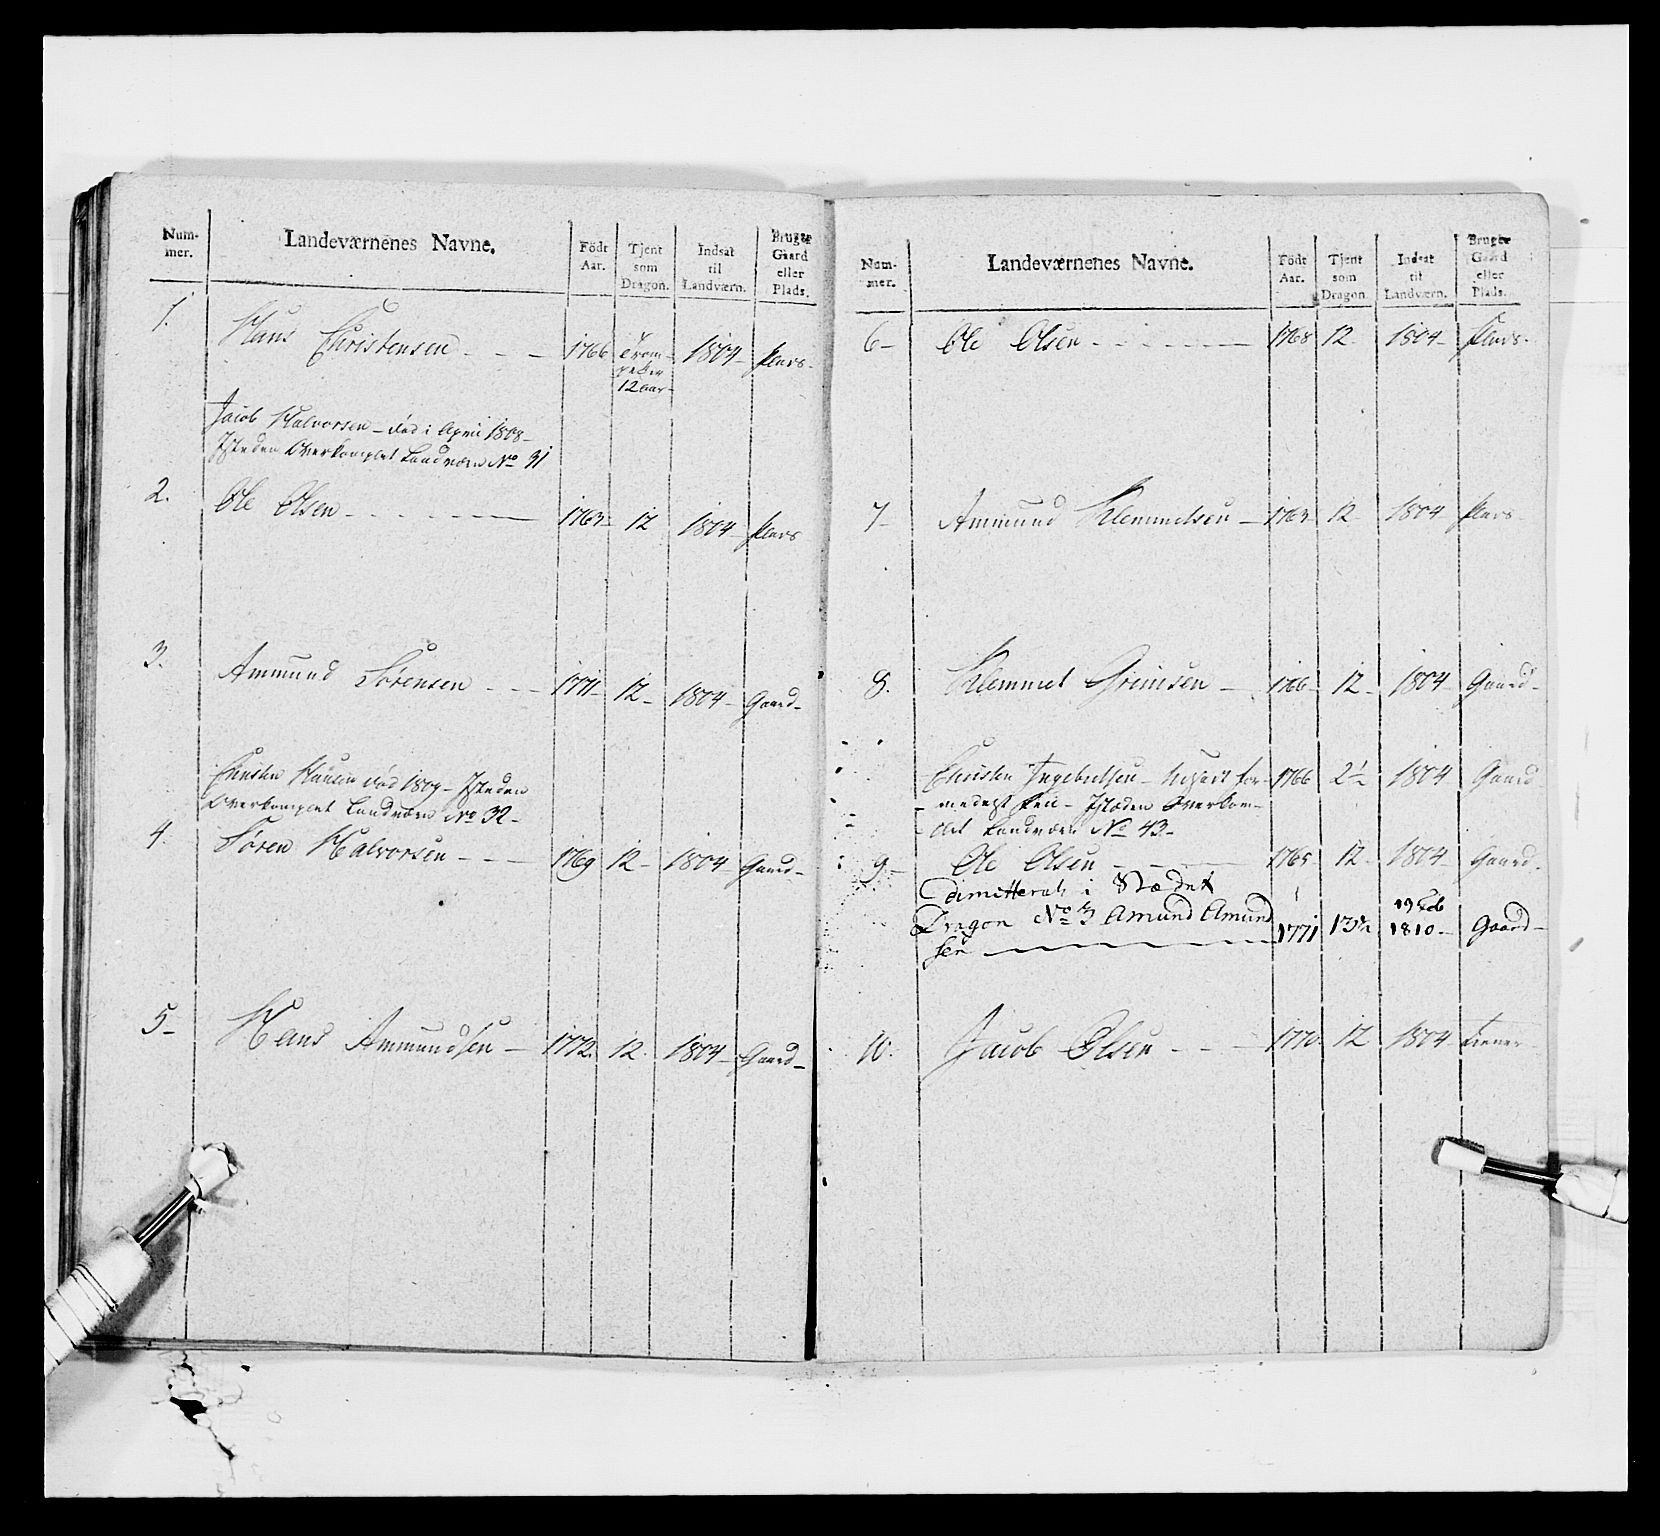 Num-
mer.
Landeværnenes Navne.
Födt
Aar.
Tjent
som
Dragon.
Indsat
til
Landværn.
Bruger
Gaard
eller
Plads.
1. Hans Christensen - - - 1766 Trom- 1804 Plads-
peter
12 aar-
Jacob Halvorsen - död i April 1808-
Isteden Overkomplet Landværn No 31
2. Ole Olsen - - - 12 1804 Plads
3. Ammund Sörensen - - - 1771 12 1804 Gaard-
Christen Hansen död 1809 - Isteden
Overkomplet Landværn No 32-
4. Sören Halvorsen - - - 1769 12 1804 Gaard-
5- Hans Ammundsen - 1772 12 1804 Gaard-
Num-
mer.
Landeværnenes Navne.
Födt
Aar.
Tjent
som
Dragon.
Indsat
til
Landværn.
Bruger
Gaard
eller
Plads.
6- Ole Olsen - - - 1768 12 1804 Plads-
7- Ammund Klemmetsen - 12 1804 Plads-
8. Klemmet Grimsen - 1766 12 1804 Gaard-
Christen Ingebretsen - for- 1766 2½ 1804 Gaard
- Isteden Overkom-
plet Landværn No 43-
9- Ole Olsen - - - 1765 12 1804 Gaard-
dimitteret i Stædet
Dragon No 3 Amund Amund 1771 13½ 19 Feb 1810- Gaard-
sen
10. Jacob Olsen - - - 1770 12 1804 Tiener